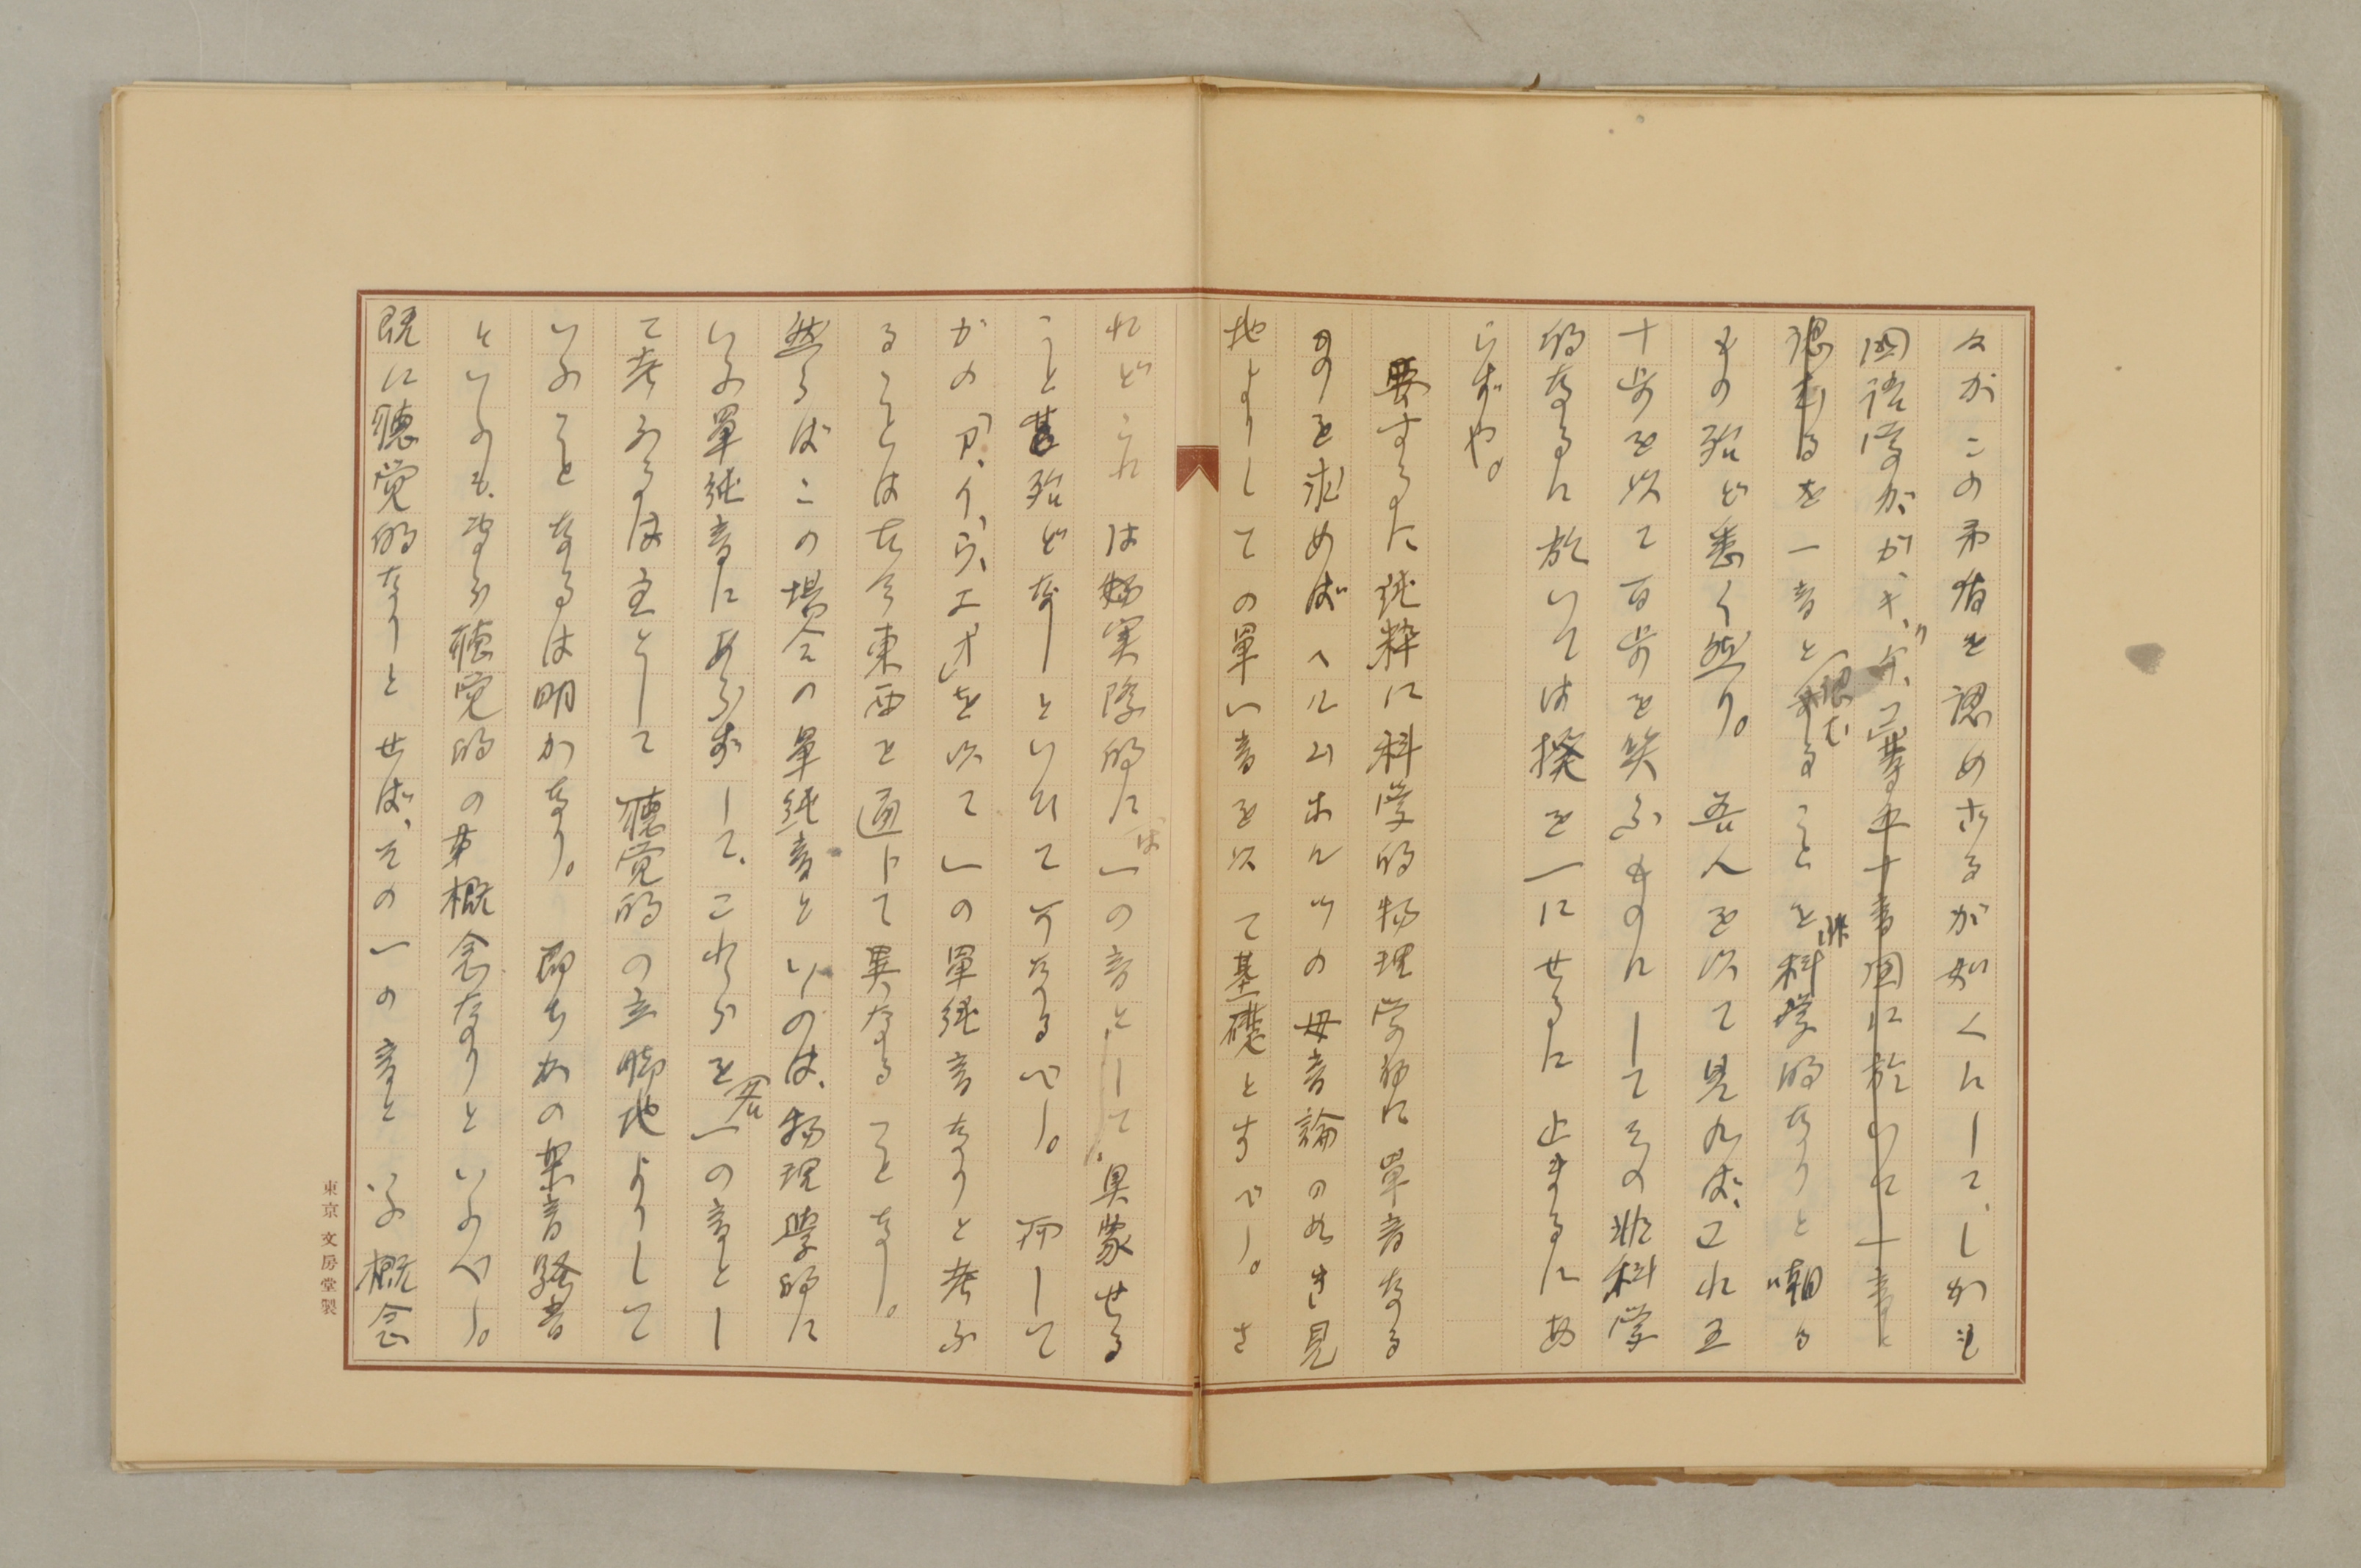 々がこの矛盾を認めさるが如くにして、しかも
国語学がガ、ギ、グ、ゴ等五十音図に於いて十音と
認むるを一音と認むることを非科学的なりと嘲る
もの殆ど悉く然り。吾人を以て見れば、これ五
十歩を以て百歩を笑ふものにしてその非科学
的なるに於いては揆を一にせるに止まるにあ
らずや。
要するに純粋に科学的物理学的に単音なる
ものを求めばヘルムホルツの母音論の如き見
地よりしての単い音を以て基礎とすべし。さ
れどこれは実際的には一の音として具蒙せる
こと甚殆どなしといひて可なるべし。而して
かの「ア、イ、ウ、エ、オ」を以て一の単純音なりと考ふ
ることは古今東西を通じて異なることなし。
然らばこの場合の単純音といのは、物理学的に
いふ単純音にあらずして、これらを畧一の音とし
て考ふるは主として聴覚的の立脚地よりして
いふことなるは明かなり。即ちかの楽音騒音
といふも、単なる聴覚的の概念なりといふべし。
既に聴覚的なりとせば、その一の音といふ概念
東京 文房堂製